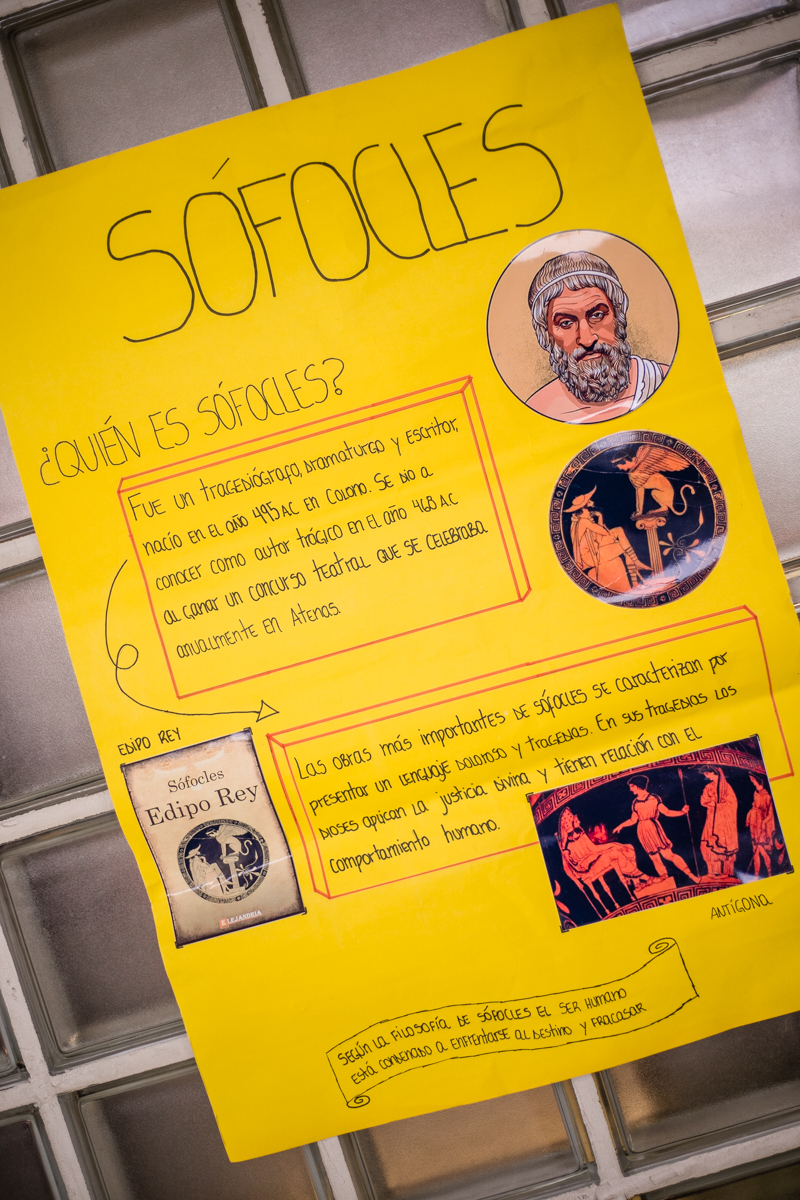 SÓFOCLES
¿QUIÉN ES SÓFOCLES?
FUE UN TRAGEDIÓGRAFO, DRAMATURGO Y ESCRITOR,
NACÍO EN EL AÑO 495 A.C EN COLONO. SE DIO A
CONOCER COMO AUTOR TRÁGICO EN EL AÑO 468 A.C
AL GANAR UN CONCURSO TEATRAL QUE SE CELEBRABA
ANUALMENTE EN ATENAS.
EDIPO REY
Sófocles
Edipo Rey
ELEJANDRIA
LAS OBRAS MÁS IMPORTANTES DE SÓFOCLES SE CARACTERIZAN POR
PRESENTAR UN LENGUAJE DOLOROSO Y TRAGEDIAS. EN SUS TRAGEDIAS LOS
DIOSES APLICAN LA JUSTICIA DIVINA Y TIENEN RELACIÓN CON EL
COMPORTAMIENTO HUMANO.
ANTÍGONA
SEGÚN LA FILOSOFÍA DE SÓFOCLES EL SER HUMANO
ESTÁ CONDENADO A ENFRENTARSE AL DESTINO Y FRACASAR